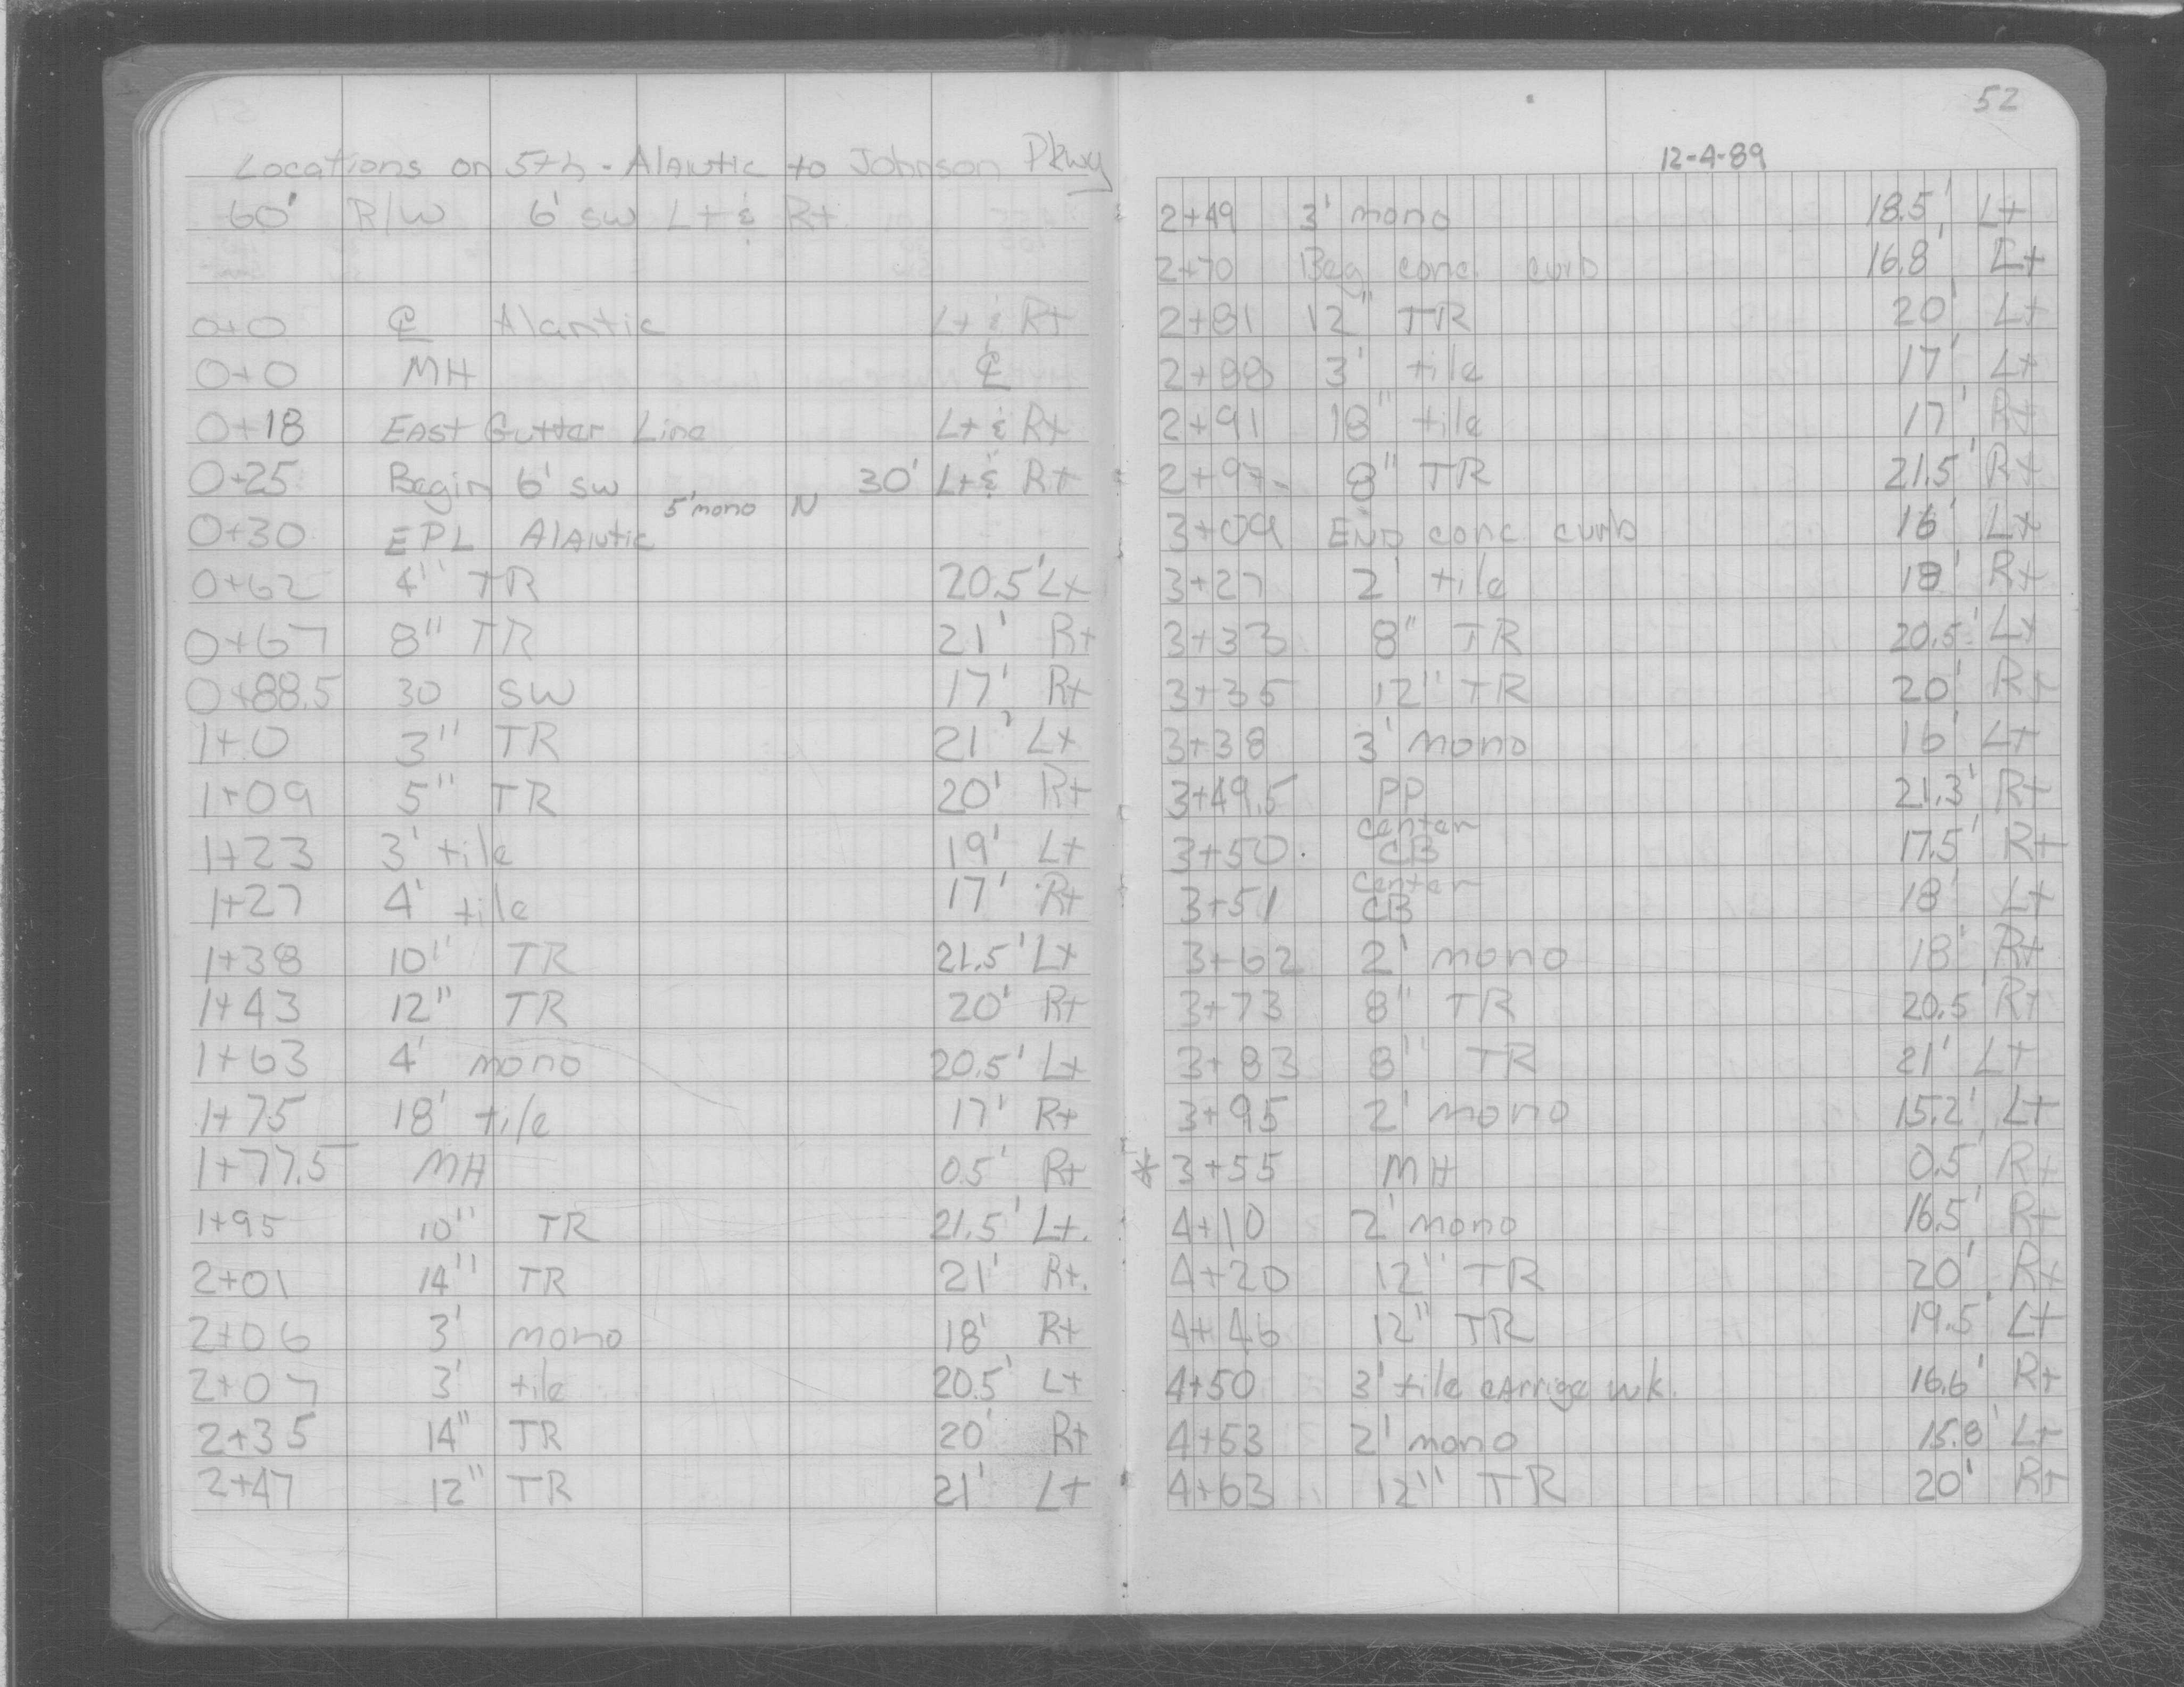 Locations on 5th - Alantic to Johnson Pkwy
60' R/W 6' sw Lt & Rt
0+0 ℄ Alantic Lt & Rt
0+0 MH ℄
0+18 East Gutter Line Lt & Rt
0+25 Begin 6' sw 30' Lt & Rt
5' mono N
0+30 EPL Alantic
0+62 4" TR 20.5' Lt
0+67 8" TR 21' Rt
0+88.5 30 SW 17' Rt
1+0 3" TR 21' Lt
1+09 5" TR 20' Rt
1+23 3' tile 19' Lt
1+27 4' tile 17' Rt
1+38 10" TR 21.5' Lt
1+43 12" TR 20' Rt
1+63 4' mono 20.5' Lt
1+75 18' tile 17' Rt
1+77.5 MH 0.5' Rt
1+95 10" TR 21.5' Lt.
2+01 14" TR 21' Rt.
2+06 3' mono 18' Rt
2+07 3' tile 20.5' Lt
2+35 14" TR 20' Rt
2+47 12" TR 21' Lt
52
12-4-89
2+49 3' mono 18.5' Lt
2+70 Beg conc. curb 16.8' Lt
2+81 12" TR 20' Lt
2+88 3' tile 17' Lt
2+91 18" tile 17' Rt
2+97 8" TR 21.5' Rt
3+09 End conc curb 16' Lt
3+27 2' tile 18' Rt
3+33 8" TR 20.5' Lt
3+35 12" TR 20' Rt
3+38 3' mono 16' Lt
3+49.5 PP 21.3' Rt
3+50 center CB 17.5' Rt
3+51 center CB 18' Lt
3+62 2' mono 18' Rt
3+73 8" TR 20.5' Rt
3+83 8" TR 21' Lt
3+95 2' mono 15.2' Lt
* 3+55 MH 0.5' Rt
4+10 2' mono 16.5' Rt
4+20 12" TR 20' Rt
4+46 12" TR 19.5' Lt
4+50 3' tile carrige wk. 16.6' Rt
4+53 2' mono 15.8' Lt
4+63 12" TR 20' Rt